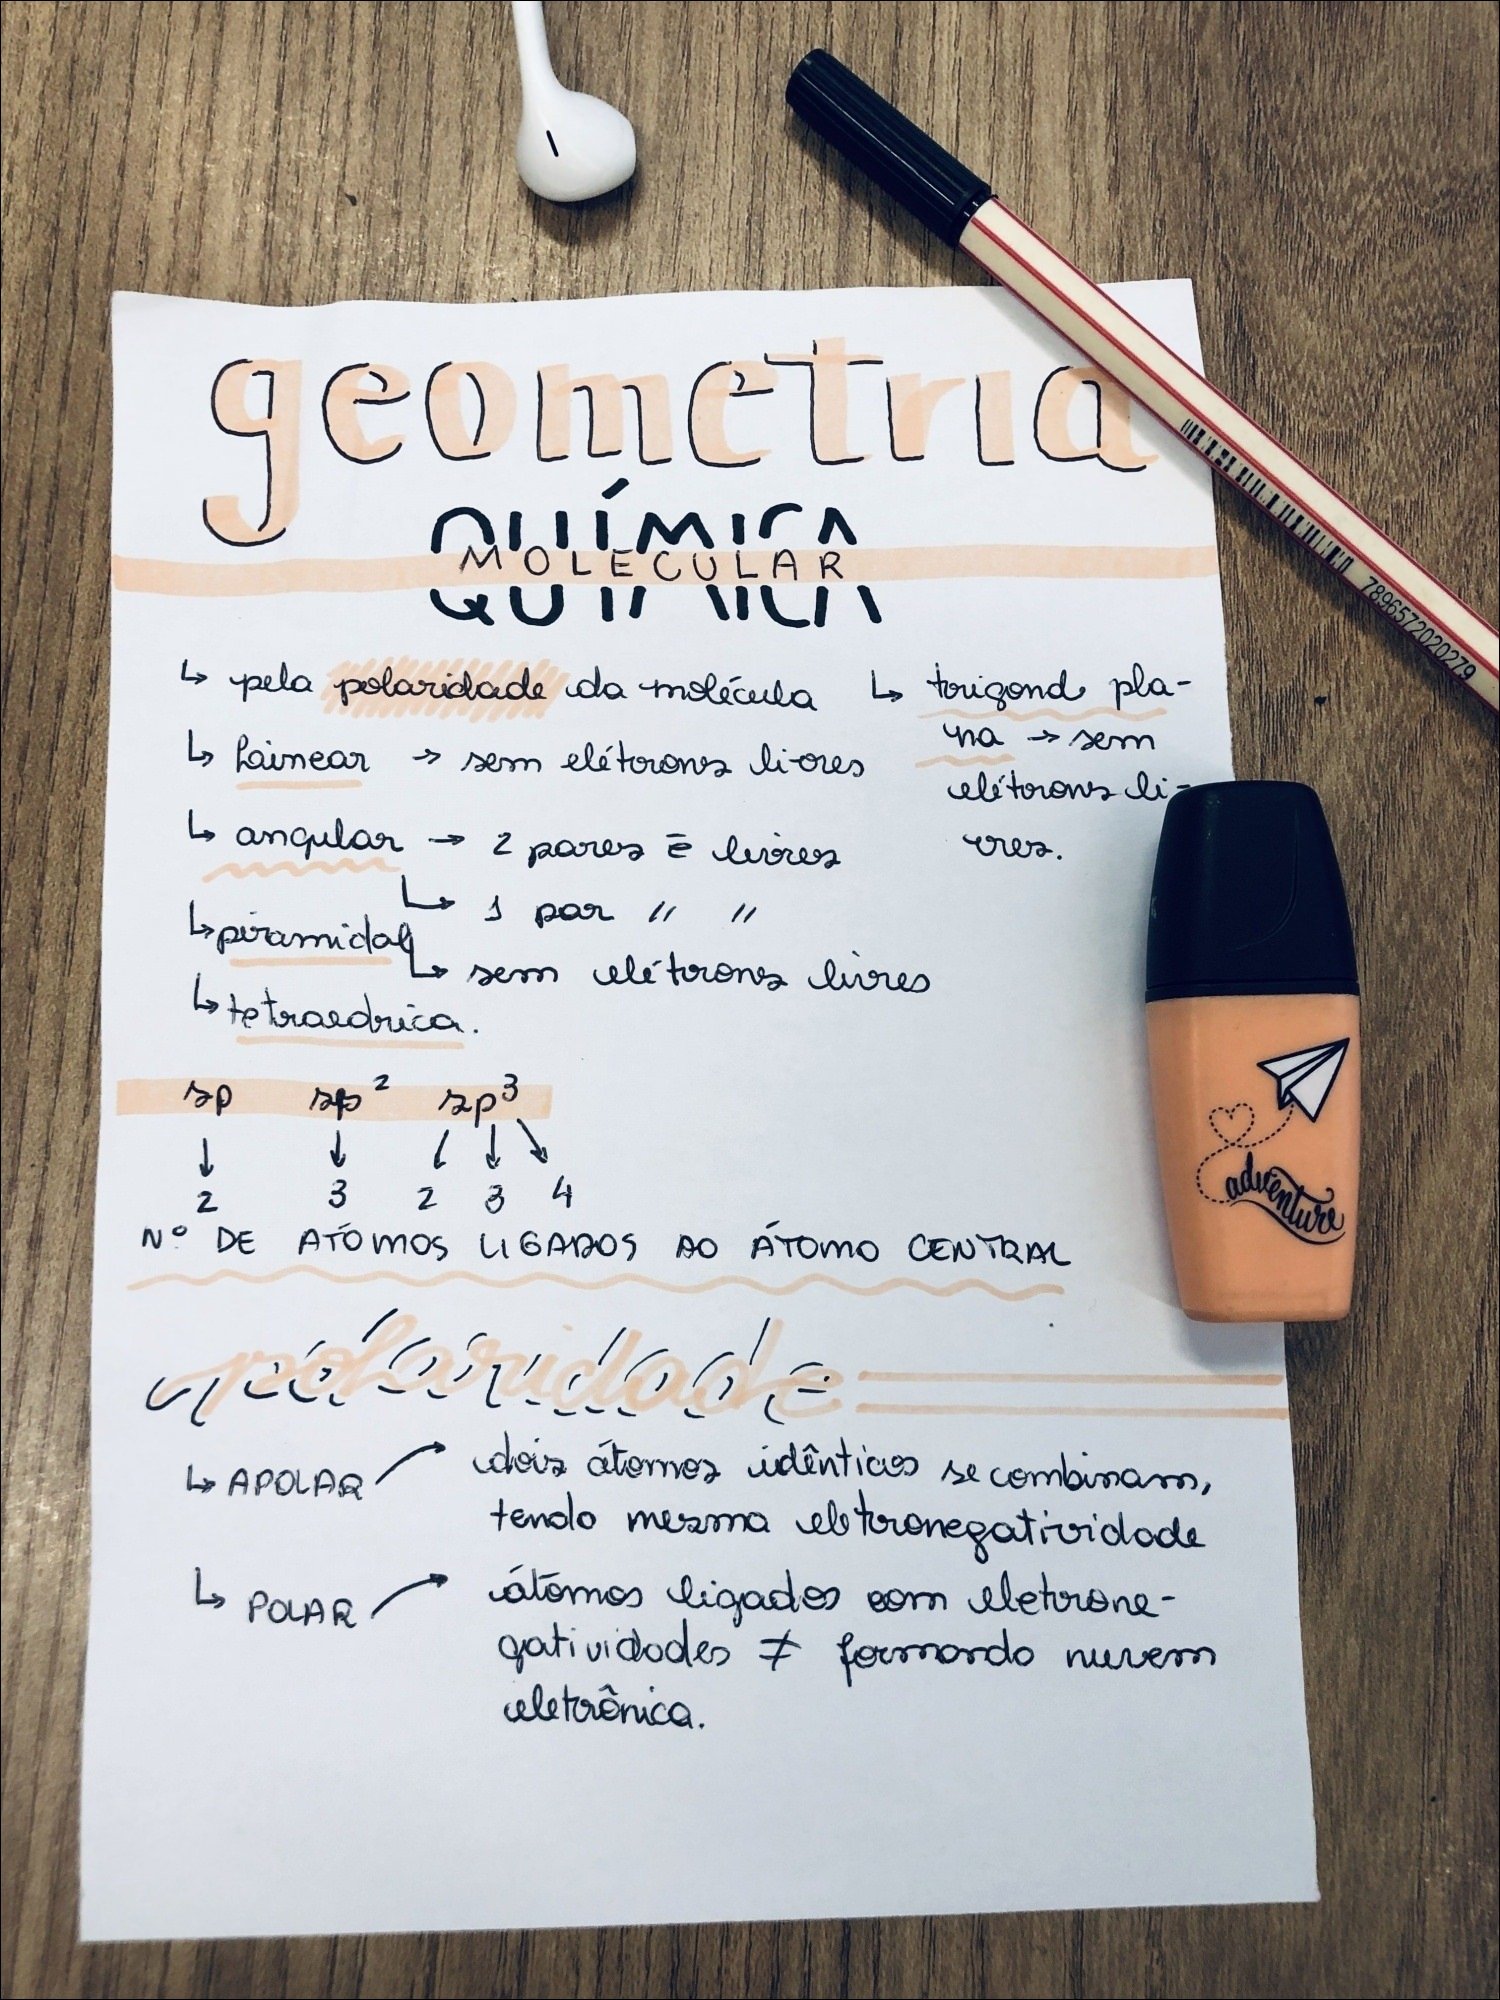 geometria
QUÍMICA
MOLECULAR
↳ pela polaridade da molécula
↳ Lainear → sem elétrons livres
↳ angular → 2 pares ē livres
↳ 1 par " "
↳ piramidal
↳ sem elétrons livres
↳ tetraedrica.
↳ trigonal pla-
na → sem
elétrons li-
vres.
sp sp² sp³
↓ ↓ ↙ ↓ ↘
2 3 2 3 4
Nº DE ATÓMOS LIGADOS AO ÁTOMO CENTRAL
polaridade
↳ APOLAR → dois átomos idênticos se combinam,
tendo mesma eletronegatividade
↳ POLAR → átomos ligados com eletrone-
gatividades ≠ formando nuvem
eletrônica.
7896572020279
adventure